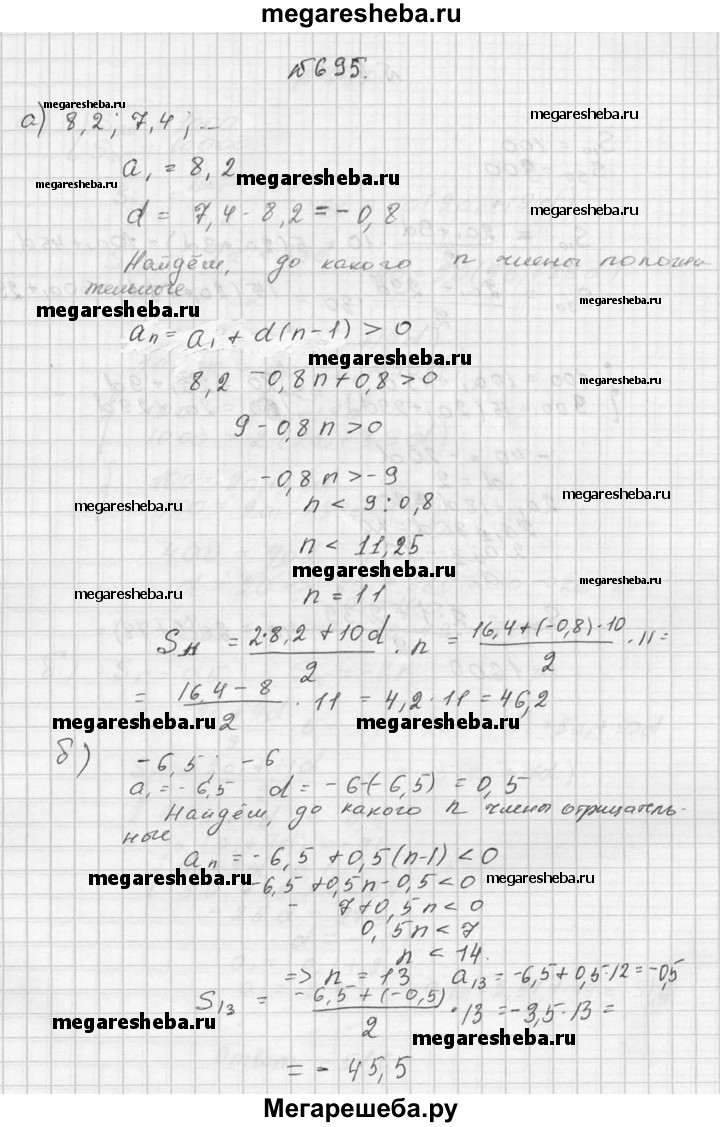 megaresheba.ru
№695.
megaresheba.ru
megaresheba.ru
а) 8,2; 7,4; ...
a₁ = 8,2
megaresheba.ru
megaresheba.ru
d = 7,4 - 8,2 = -0,8
megaresheba.ru
Найдём, до какого n члены положи
тельные
megaresheba.ru
megaresheba.ru
aₙ = a₁ + d(n-1) > 0
megaresheba.ru
8,2 - 0,8n + 0,8 > 0
megaresheba.ru
9 - 0,8n > 0
-0,8n > -9
megaresheba.ru
megaresheba.ru
n < 9 : 0,8
n < 11,25
megaresheba.ru
megaresheba.ru
megaresheba.ru
n = 11
Sн = (2·8,2 + 10d)/2 · n = (16,4 + (-0,8)·10)/2 · 11 =
= (16,4 - 8)/2 · 11 = 4,2 · 11 = 46,2
megaresheba.ru
megaresheba.ru
б) -6,5; -6
a₁ = -6,5 d = -6-(-6,5) = 0,5
Найдём, до какого n члены отрицатель-
ные
aₙ = -6,5 + 0,5(n-1) < 0
megaresheba.ru
-6,5 + 0,5n - 0,5 < 0
megaresheba.ru
- 7 + 0,5n < 0
0,5n < 7
n < 14.
=> n = 13 a₁₃ = -6,5 + 0,5·12 = -0,5
S₁₃ = (-6,5 + (-0,5))/2 · 13 = -3,5·13 =
megaresheba.ru
megaresheba.ru
= - 45,5
Мегарешеба.ру